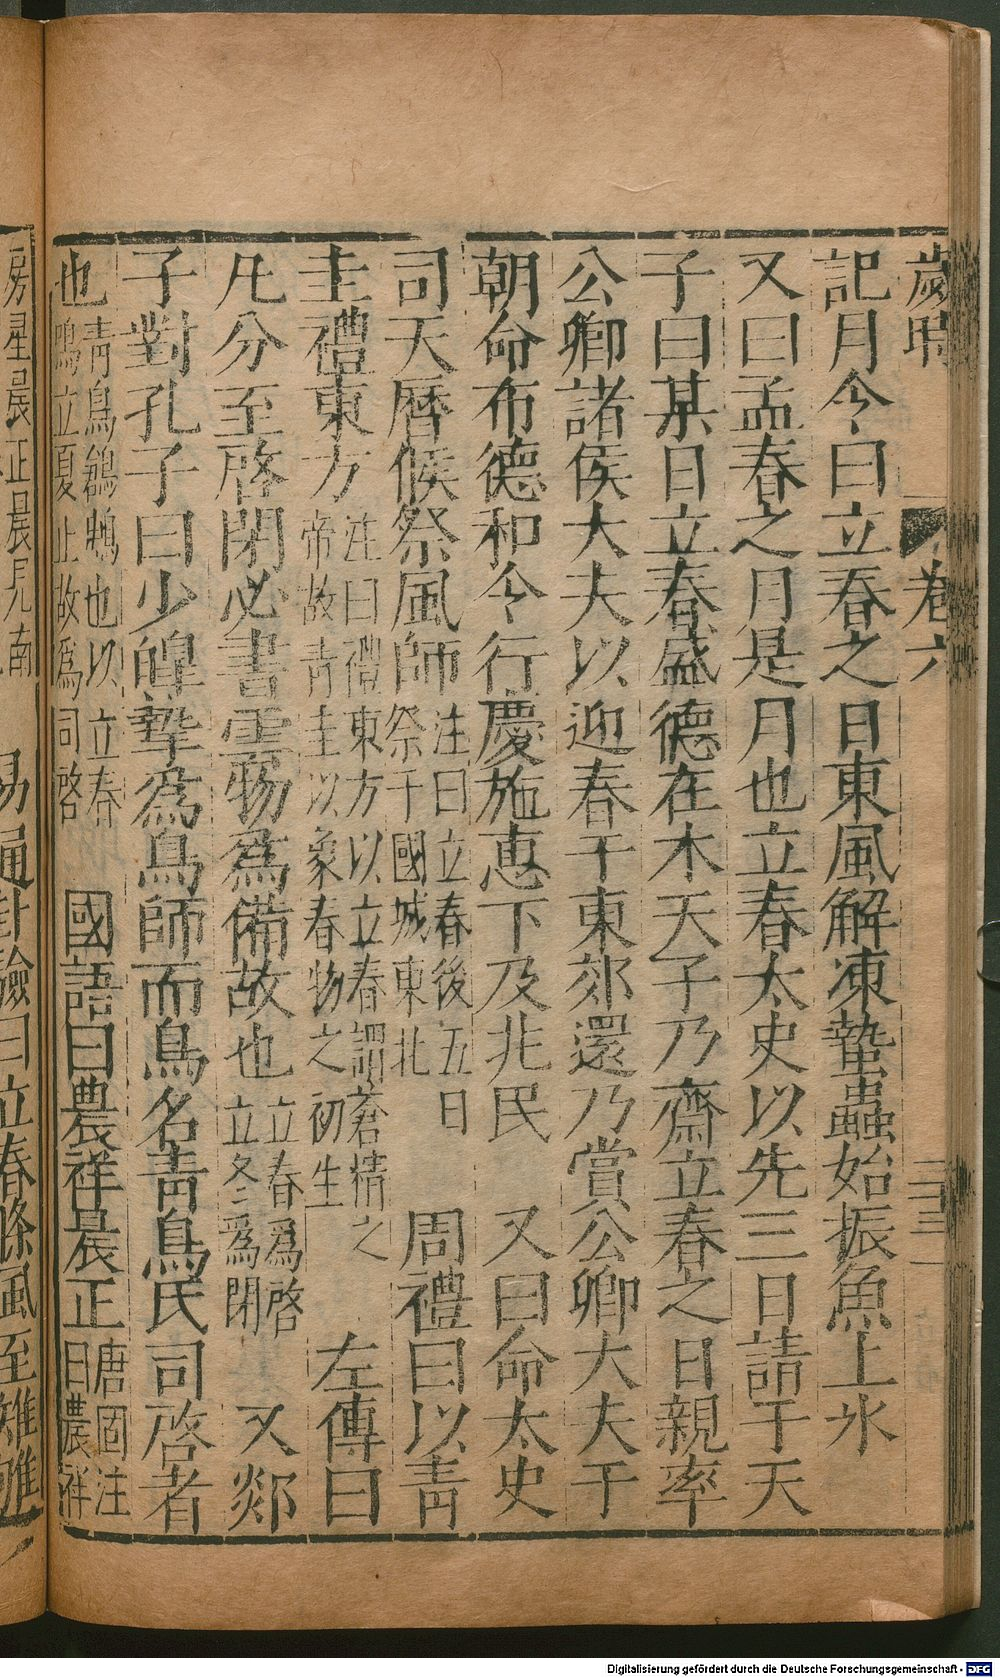 歲時
卷六
三十三
記月令曰立春之日東風解凍蟄蟲始振魚上氷
又曰孟春之月是月也立春太史以先三日請于天
子曰某日立春盛德在木天子乃齋立春之日親率
公卿諸侯大夫以迎春于東郊還乃賞公卿大夫于
朝命布德和令行慶施惠下及兆民 又曰命太史
司天曆候祭風師注曰立春後五日祭于國城東北 周禮曰以靑
圭禮東方注曰禮東方以立春謂蒼精之帝故靑圭以象春物之初生 左傳曰
凡分至啓閉必書雲物爲備故也立春爲啓立冬爲閉 又郯
子對孔子曰少皥摯爲鳥師而鳥名靑鳥氏司啓者
也靑鳥鶬鴳也以立春鳴立夏止故爲司啓 國語曰農祥晨正唐固注曰農祥
房星晨正晨見南
易通卦驗曰立春條風至雉雊
Digitalisierung gefördert durch die Deutsche Forschungsgemeinschaft - DFG